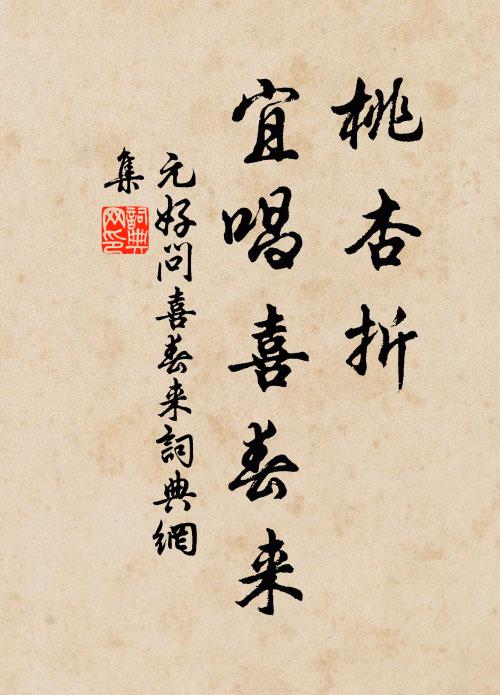 桃杏折
宜唱喜春来
元好问喜春来詞典網
集
詞典
网印